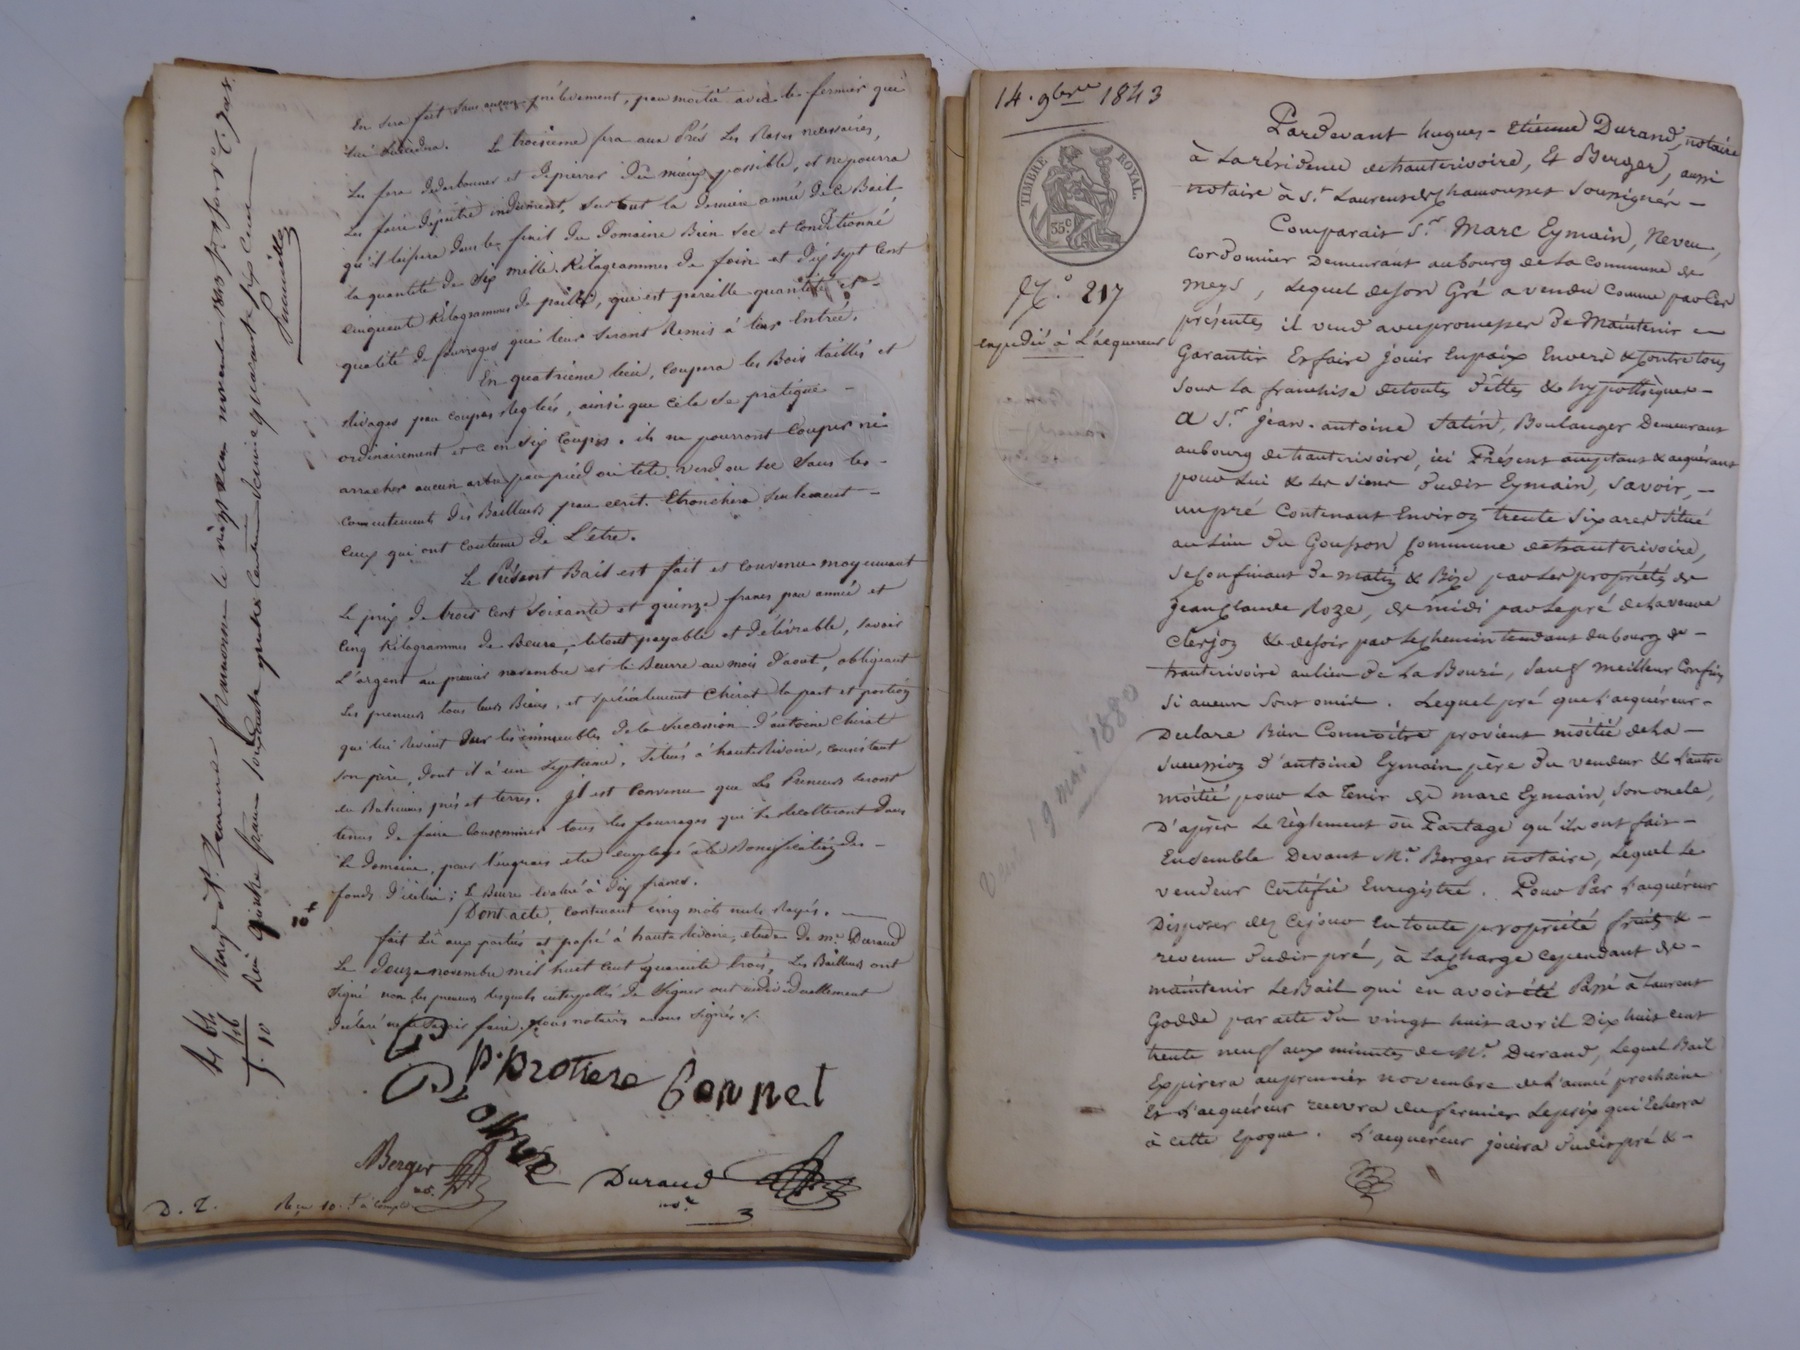 En sera fait sans aucun prélèvement, par moitié avec le fermier qui
lui succédera. La troisieme fera aux Prés Les Rases nécessaires,
Les fera et épierrer du mieux possible, et ne pourra
Les faire dépaitre indûment, surtout la derniere année de ce Bail
qu'il laissera dans les finil du domaine Bien sec et conditionné
la quantité de Six mille Kilogrammes de foin et dix sept cent
cinquant Kilogrammes de paille, qui est pareille quantité et
qualité de fourrages qui leur seront Remis à leur Entrée.
En quatrieme lieu, coupera les Bois taillis et
Rivages par coupes Reglées, ainsi que cela se pratique
ordinairement et ce en six coupes. ils ne pourront Couper ni
arracher aucun arbre par pied ou tête verd ou sec sans les
consentements des Bailleurs par ecrit. Etronchera seulement
ceux qui ont coutume de L'être.
Le Présent Bail est fait et convenu moyennant
Le prix de trois cent soixante et quinze francs par année et
cinq Kilogrammes de Beurre, le tout payable et délivrable, savoir
L'argent au premier novembre et le Beurre au mois d'aout, obligeant
Les preneurs tous leurs Biens, et spécialement Chirat la part et portion
qui lui Revient sur les immeubles de la succession d'antoine Chirat
son père, dont il à un septieme, situés à haute Rivoire, consistant
en Batimens prés et terres. Il est convenu que Les Preneurs seront
tenus de faire Consommer tous les fourrages qui se Récolteront dans
le domaine, pour l'engrais etre employé à la Bonnification des
fonds d'icelui; le Beurre évalué à dix francs.
Dont acte, contenant cinq mots nuls Rayés.
fait Lû aux parties et passé à haute Rivoire, etude de Me. Durand
Le douze novembre mil huit cent quarante trois, Les Bailleurs ont
signé non les preneurs lesquels interpellés de signer ont individuellement
déclaré ne le savoir faire. Nous notaires avons signés.
P. Protiere Connet
Protiere
Berger
no.
Durand
nore
D. 2. Reçu 10.f à compte
10f
14 · 9bre 1843
TIMBRE ROYAL
35c
No. 217
expédié à L'acquereur
Vente 19 mai 1880
Pardevant hugues-Etienne Durand, notaire
à La résidence de hauterivoire, Et Berger, aussi
notaire à St. Laurent de Chamousset Soussignés
Comparait Sr. Marc Eymain, Neveu,
cordonnier Demeurant au bourg de La Commune de
meys, Lequel de son Gré a vendu Comme par Ces
présentes il vend avec promesses de Maintenir
Garantir Et faire jouir En paix Envers & Contre tous
Sous La franchise de toutes dettes & hypothèques
A Sr. Jean-antoine Satin, Boulanger Demeurant
au bourg de hauterivoire, ici Présent acceptant & acquérant
pour Lui & les siens dudit Eymain, Savoir,
un pré Contenant Environ trente six ares situé
au Lieu du Commune de hauterivoire,
Se Confinant de matin & Bize par Les propriétés de
Jean Claude Roze, de midi par le pré de La veuve
Clerjon & de soir par Le Chemin tendant du bourg de
hauterivoire au lieu de La Bouri, Sauf meilleur Confins
Si aucun Sont omis. Lequel pré que L'acquéreur
Declare Bien Connoître provient môitié de La
Succession d'antoine Eymain père du vendeur & L'autre
môitié pour La Tenir de marc Eymain, Son oncle,
D'après Le règlement ou Partage qu'ils ont fait
Ensemble Devant Me. Berger notaire, Lequel Le
vendeur Certifie Enregistré. Pour Par L'acquéreur
Disposer dez Ce jour En toute propriété fruits &
revenu dudit pré, à La charge cependant de
maintenir Le Bail qui en avoit été Passé à Laurent
Godde par acte du vingt huit avril Dix huit cent
trente neuf aux minutes de Me. Durand, Lequel Bail
Expirera au premier novembre de L'année prochaine
Et L'acquéreur recevra du fermier Le prix qui Echerra
à cette Epoque. L'acquéreur jouira dudit pré &